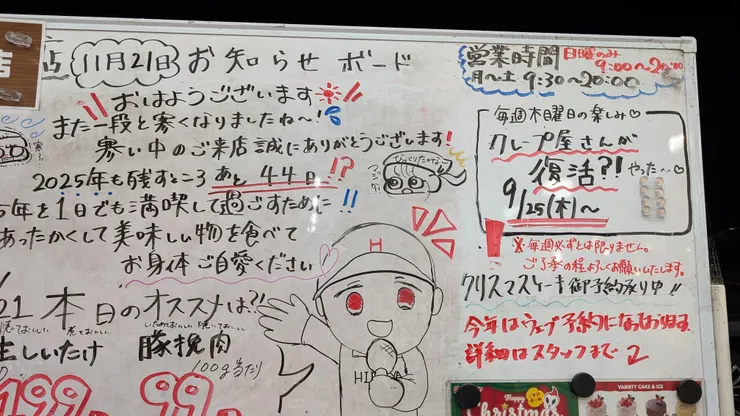 店
11月21日 お知らせボード
おはようございます
また一段と寒くなりましたね〜!
寒い中のご来店誠にありがとうございます!
2025年も残すところあと44日!?
5年を1日でも満喫して過ごすために!!
あったかくして美味しい物を食べて
お身体ご自愛ください♡
21 本日のオススメは?!
煮ておいしい
いためておいしい 焼いておいしい
生しいたけ
豚挽肉
100g当たり
199
99
H
営業時間
日曜のみ
9:00〜20:00
月〜土 9:30〜20:00
毎週木曜日の楽しみ♡
クレープ屋さんが
復活?! やった〜♡
9/25(木)〜
※毎週必ずとは限りません。
ご了承の程よろしくお願いいたします。
クリスマスケーキ御予約承り中!!
今年はウェブ予約になっております
詳細はスタッフまで
Happy
Christmas
VARIETY CAKE & ICE